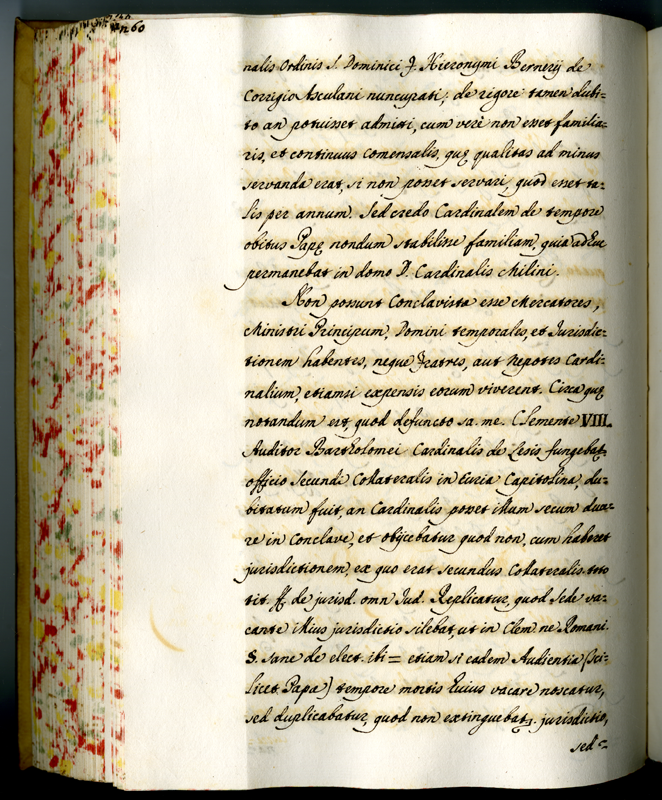 260
nalis Ordinis S. Dominici f. Hieronymi Bernerij de
Corrigio Asculani nuncupati; de rigore tamen dubi=
to an potuisset admitti, cum verè non esset familia=
ris, et continuus comensalis, quę qualitas ad minus
servanda erat, si non posset servari, quod esset ta=
lis per annum. Sed credo Cardinalem de tempore
obitus Papę nondum stabilisse familiam, quia adhuc
permanebat in domo D. Cardinalis Milini.
Non possunt Conclavistæ esse Mercatores,
Ministri Principum, Domini temporales, et Jurisdic=
tionem habentes, neque Fratres, aut Nepotes Cardi=
nalium, etiamsi expensis eorum viverent. Circa quę
notandum est, quod defuncto sa. me. Clemente VIII.
Auditor Bartholomei Cardinalis de Cesis fungebat.
officio Secundi Collateralis in Curia Capitolina, du=
bitatum fuit, an Cardinalis posset illum secum duce=
re in Conclave, et obijcebatur quod non, cum haberet
jurisdictionem, ex quo erat secundus Collateralis. toto
tit. ff. de jurisd. omn Jud. Replicatur, quod Sede va=
cante illius jurisdictio silebat, ut in Clem. ne Romani.
S. Sane de elect. ibi = etiam si eadem Audientia (sci=
licet Papæ) tempore mortis huius vacare noscatur,
sed duplicabatur, quod non extinguebat. jurisdictio,
sed